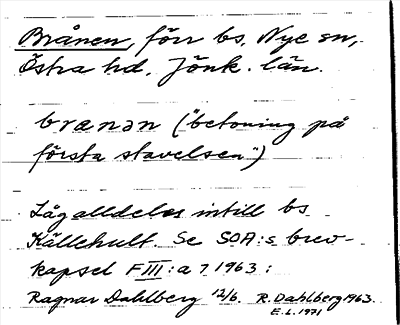 Brånen, förr bs, Nye sn,
Östra hd, Jönk. län.
branan ("betoning på
första stavelsen")
Låg alldeles intill bs
Källehult. Se SOA:s brev-
kapsel F III:a 7 1963:
Ragnar Dahlberg 12/6. R. Dahlberg 1963.
E.L. 1971